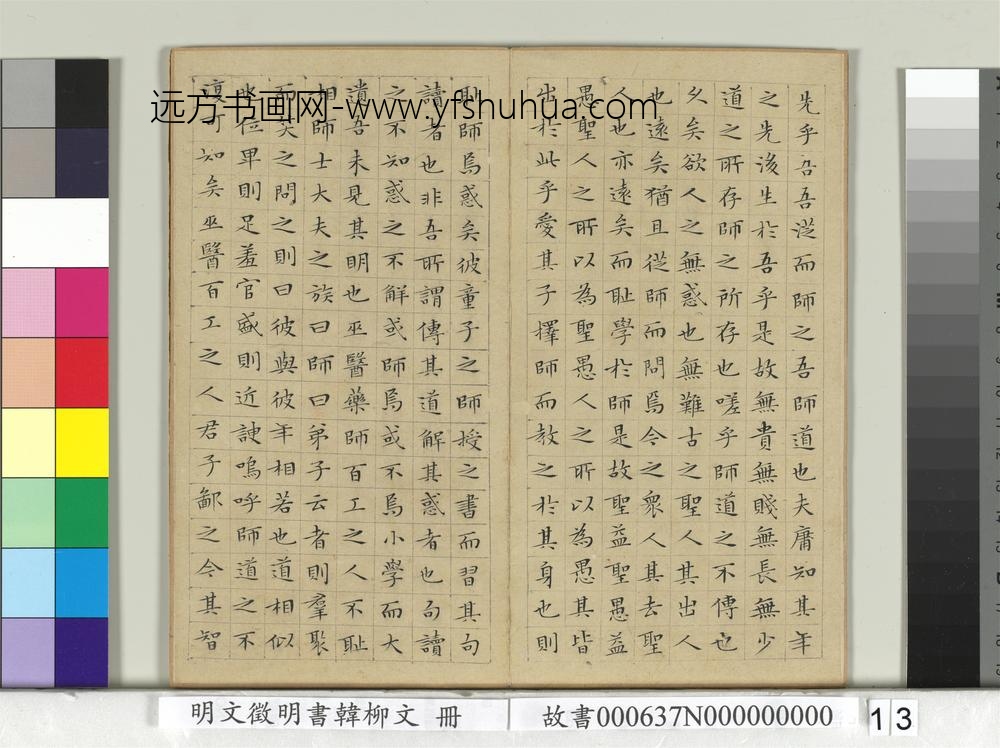 先乎吾吾從而師之吾師道也夫庸知其年
之先後生於吾乎是故無貴無賤無長無少
道之所存師之所存也嗟乎師道之不傳也
久矣欲人之無惑也無難古之聖人其出人
也遠矣猶且從師而問焉今之衆人其去聖
人也亦遠矣而耻學於師是故聖益聖愚益
愚聖人之所以為聖愚人之所以為愚其皆
出於此乎愛其子擇師而教之於其身也則
耻師焉惑矣彼童子之師授之書而習其句
讀者也非吾所謂傳其道解其惑者也句讀
之不知惑之不解或師焉或不焉小學而大
遺吾未見其明也巫醫藥師百工之人不耻
相師士大夫之族曰師曰弟子云者則羣聚
而笑之問之則曰彼與彼年相若也道相似
也位卑則足羞官盛則近諛嗚呼師道之不
復可知矣巫醫百工之人君子鄙之今其智
远方书画网-www.yfshuhua.com
明文徵明書韓柳文 冊
故書000637N000000000
13